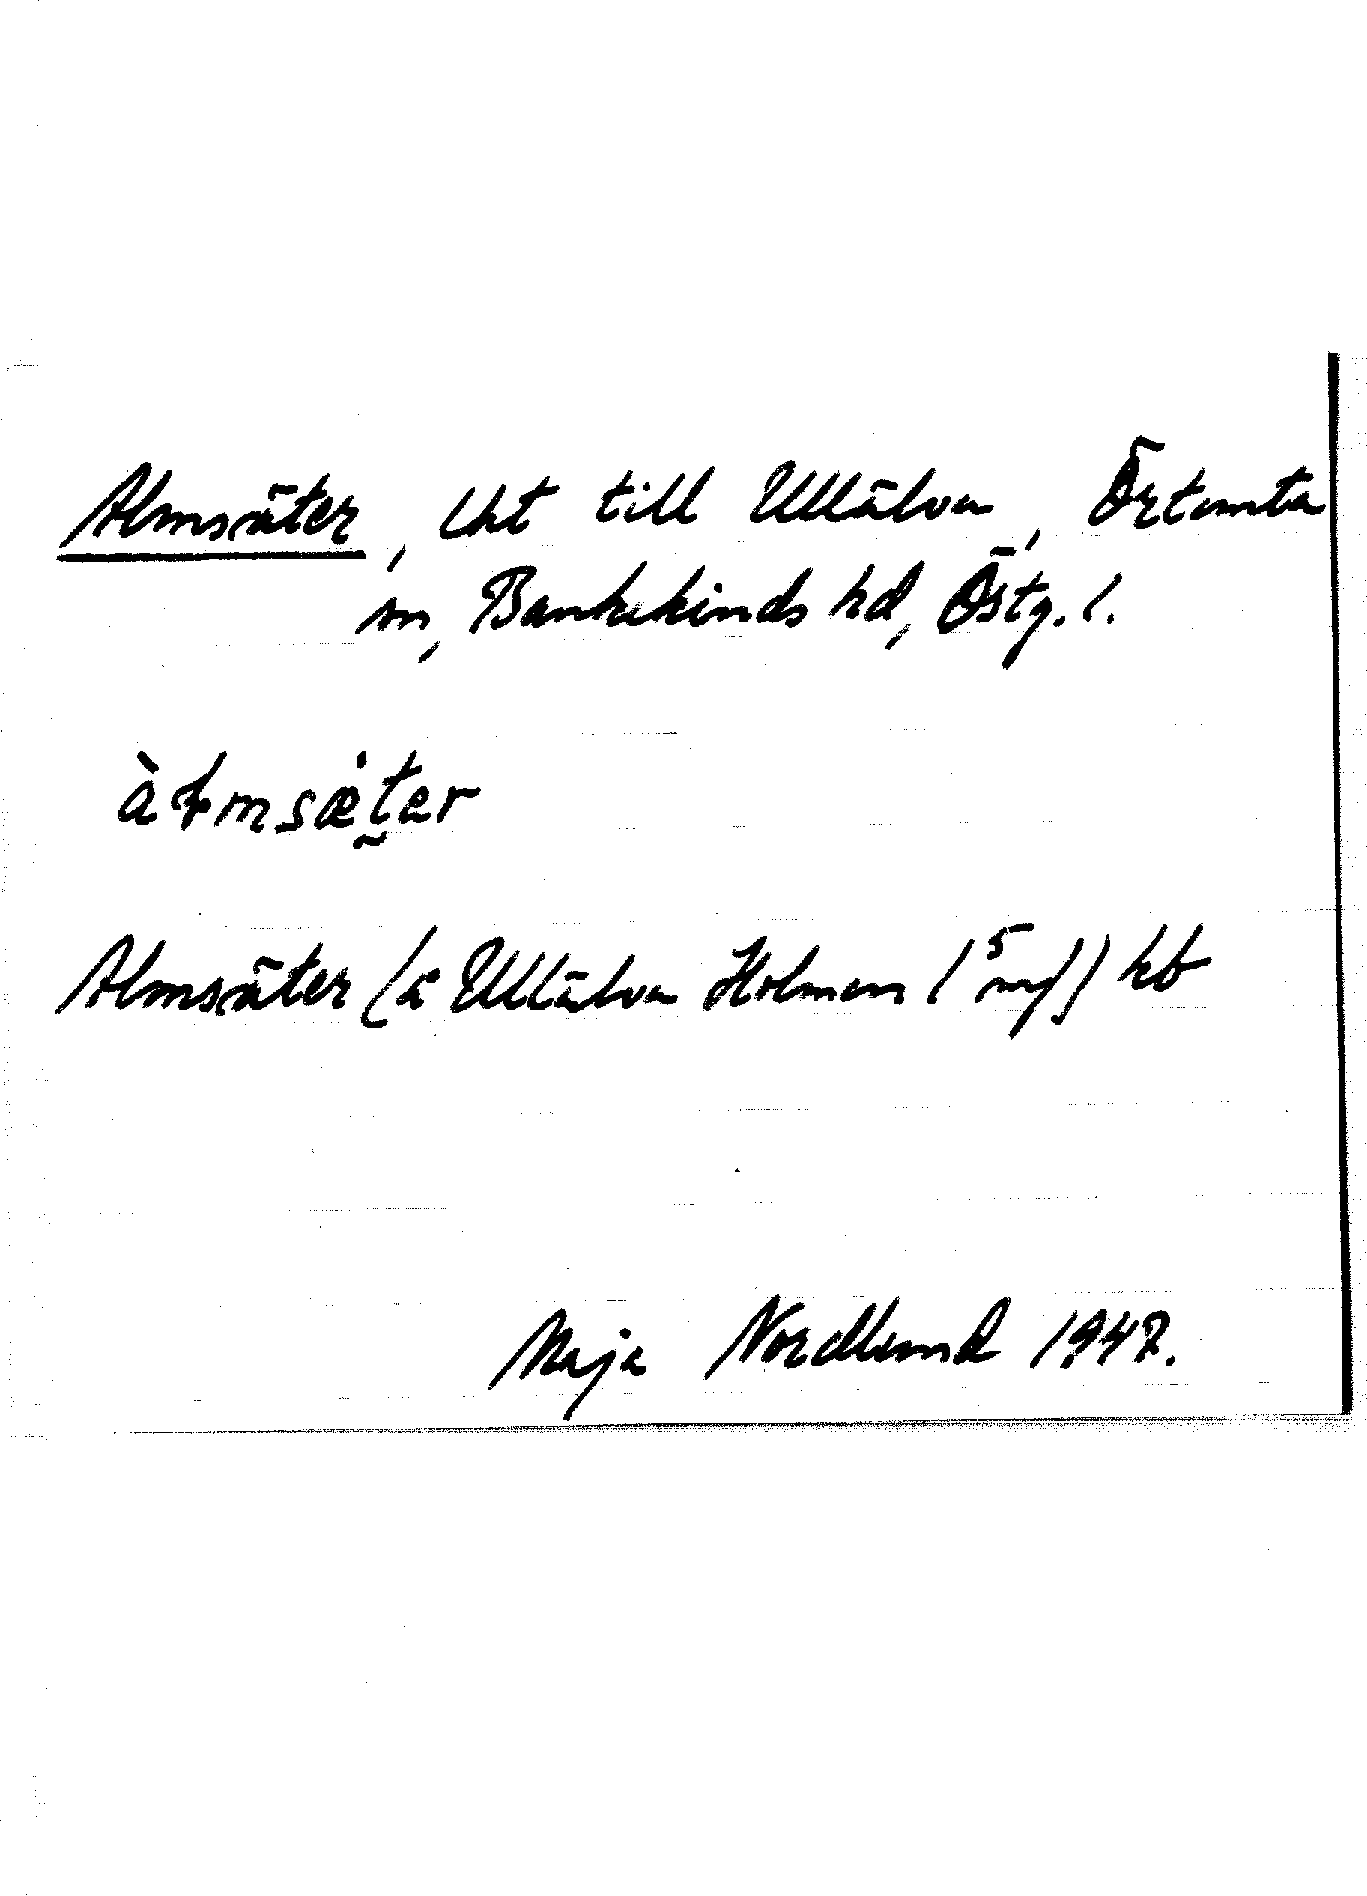 Almsäter, lht till Ullälva, Örtomta
sn, Bankekinds hd, Östg. l.
àłmsæ̇t̰er
Almsäter (å Ullälva Holmen (5 mf)) kb
Maja Nordlund 1947.